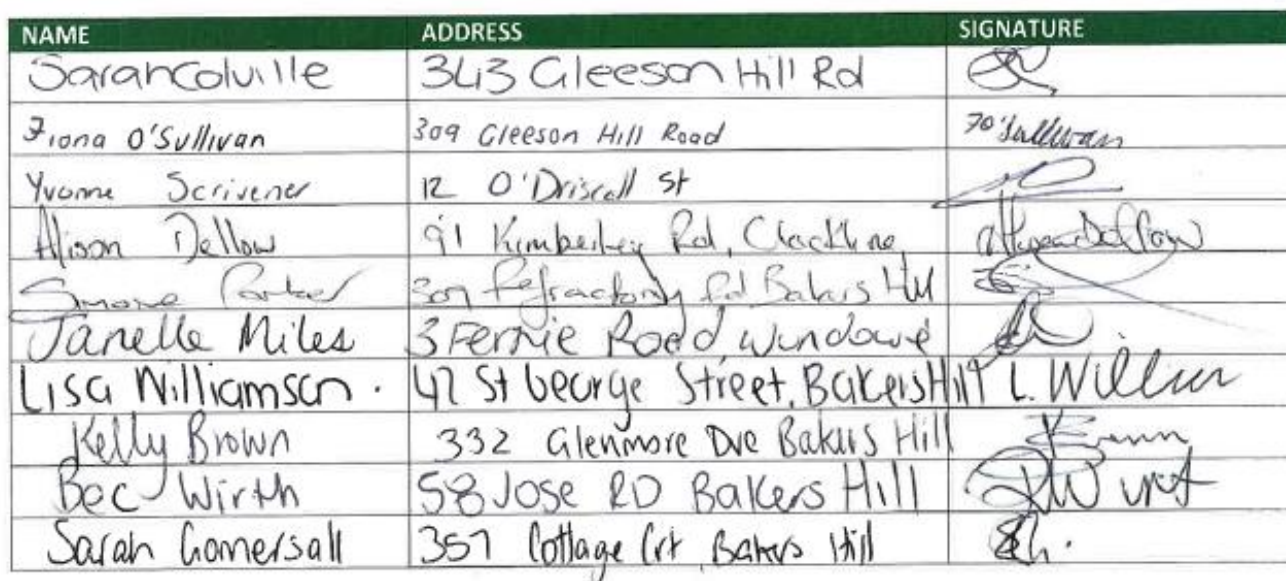 NAME ADDRESS SIGNATURE
Sarah Colville 343 Gleeson Hill Rd
Fiona O'Sullivan 309 Gleeson Hill Road FO'Sullivan
Yvonne Scrivener 12 O'Driscoll St
Alison Dellow 91 Kimberley Rd, Clackline Alison Dellow
Simone Parker 309 Refractory Rd Bakers Hill
Janelle Miles 3 Fernie Road Wundowie
Lisa Williamson. 47 St George Street, Bakers Hill L. Willim
Kelly Brown 332 Glenmore Dve Bakers Hill
Bec Wirth 58 Jose RD Bakers Hill
Sarah Gomersall 357 Cottage Crt, Bakers Hill